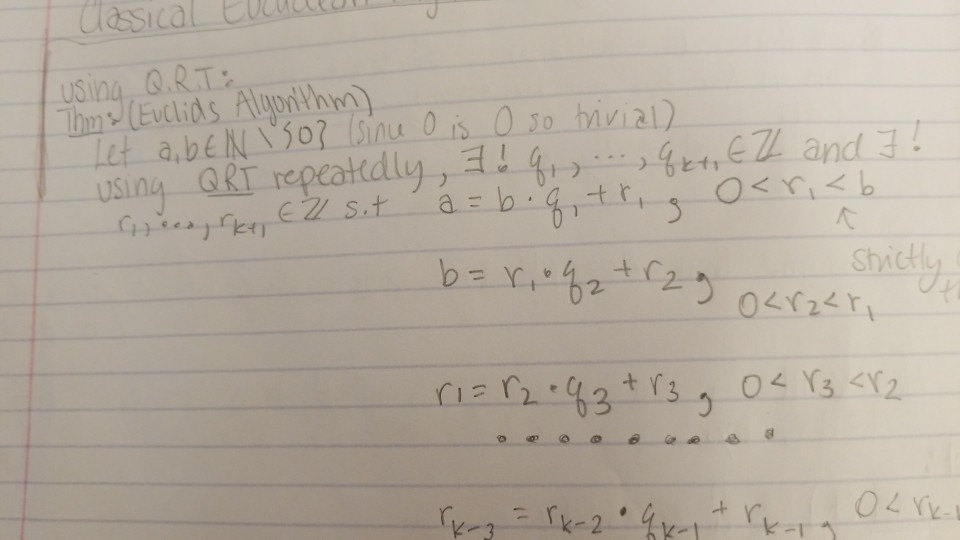 Classical Euclidean
using Q.R.T:
Thm: (Euclids Algorithm)
Let a,b∈ℕ\{0} (since 0 is 0 so trivial)
using QRT repeatedly, ∃! q₁, ..., qₖ₊₁ ∈ ℤ and ∃!
r₁, ..., rₖ₊₁ ∈ ℤ s.t a = b · q₁ + r₁, 0 < r₁ < b
↑
strictly
b = r₁ · q₂ + r₂,
0 < r₂ < r₁
r₁ = r₂ · q₃ + r₃, 0 < r₃ < r₂
. . . . . . . . .
rₖ₋₃ = rₖ₋₂ · qₖ₋₁ + rₖ₋₁, 0 < rₖ₋₁